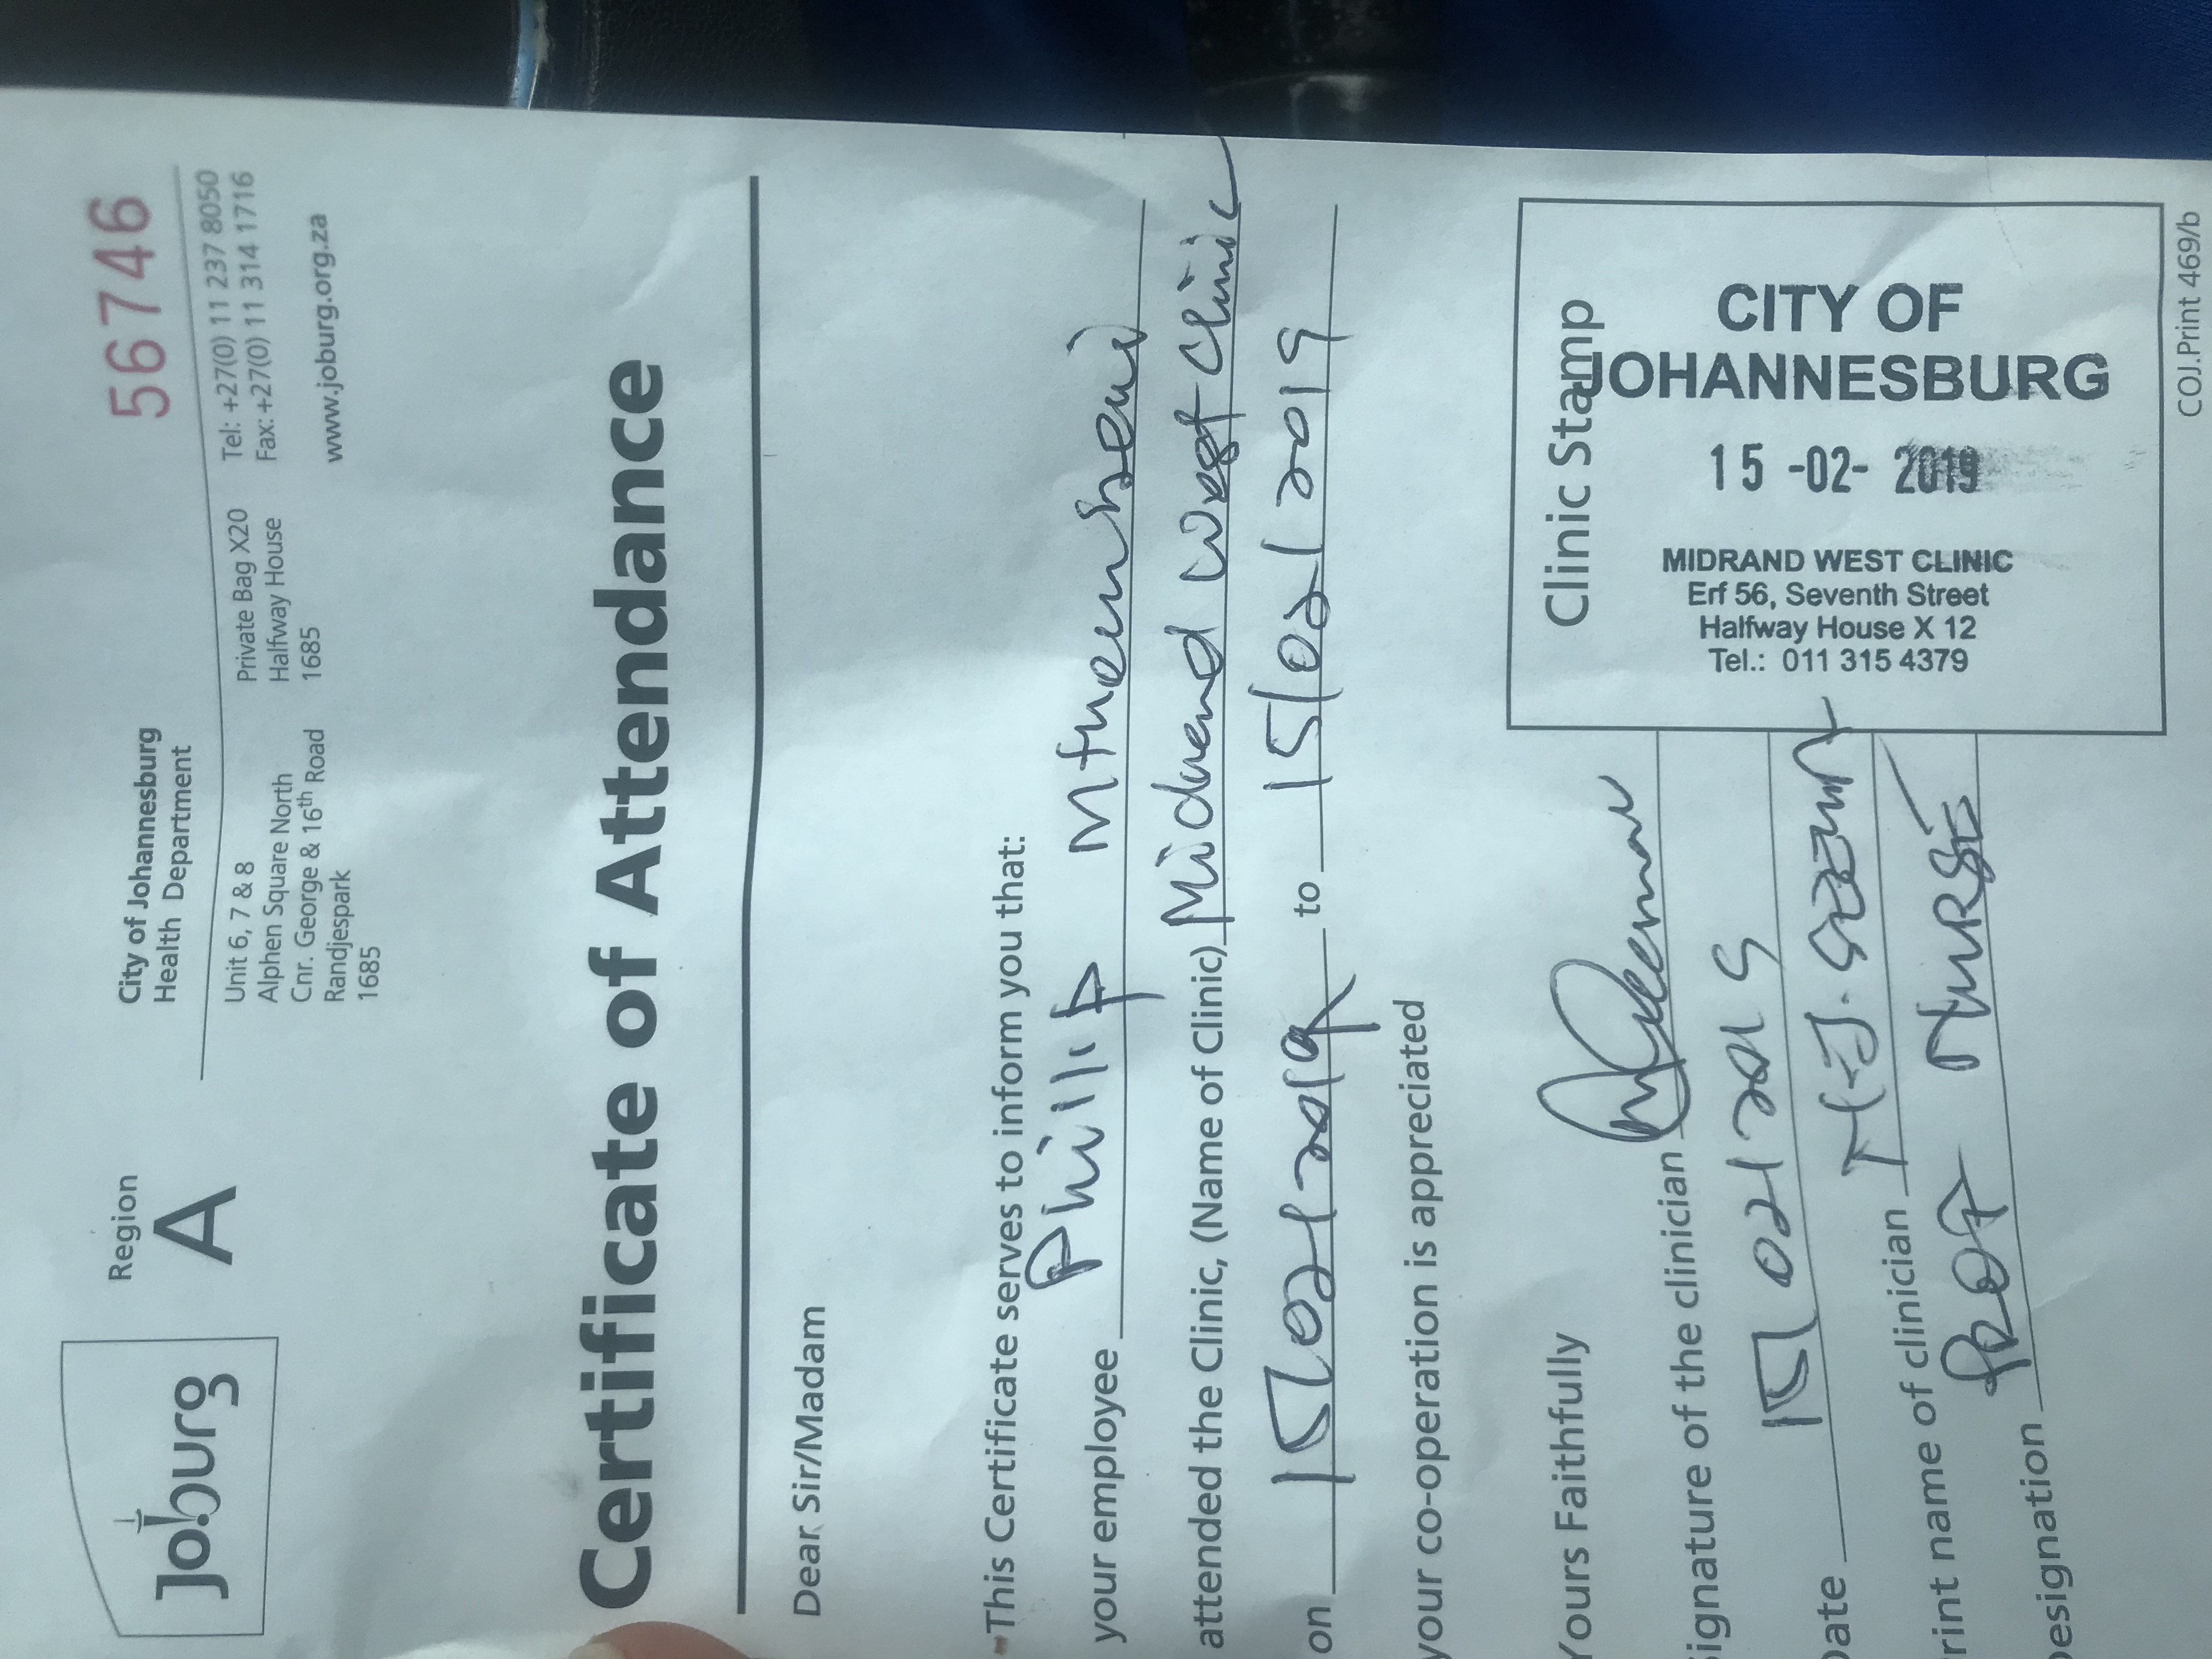 Joburg
Region
A
City of Johannesburg
Health Department
56746
Unit 6, 7 & 8
Alphen Square North
Cnr. George & 16th Road
Randjespark
1685
Private Bag X20
Halfway House
1685
Tel: +27(0) 11 237 8050
Fax: +27(0) 11 314 1716
www.joburg.org.za
Certificate of Attendance
Dear Sir/Madam
This Certificate serves to inform you that:
your employee Phillip
attended the Clinic, (Name of Clinic) Midrand West Clinic
on 15/02/2019 to 15/02/2019
your co-operation is appreciated
Yours Faithfully
Signature of the clinician
Date 15/02/2019
Print name of clinician
Designation PROF NURSE
Clinic Stamp
CITY OF
JOHANNESBURG
15 -02- 2019
MIDRAND WEST CLINIC
Erf 56, Seventh Street
Halfway House X 12
Tel.: 011 315 4379
COJ.Print 469/b